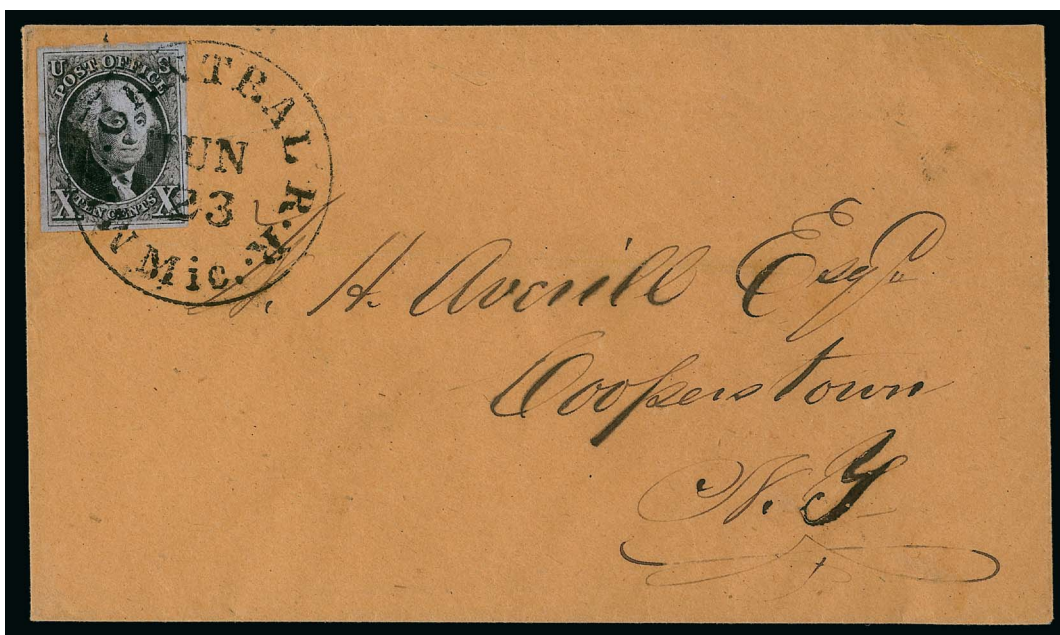 U S
POST OFFICE
X TEN CENTS X
TRAL R.R.
JUN
23
Mic.
H. Averill Esqr
Cooperstown
N. Y